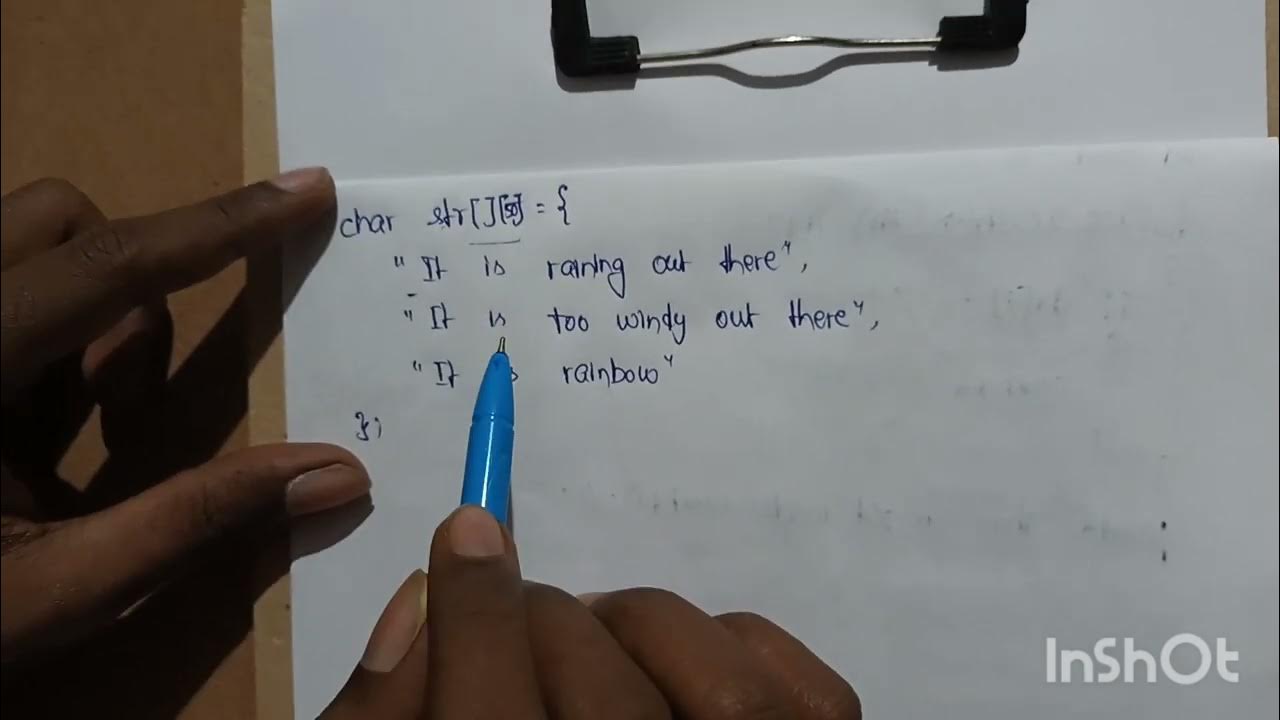 char str[][50] = {
"It is raining out there",
"It is too windy out there",
"It is rainbow"
};
InShOt